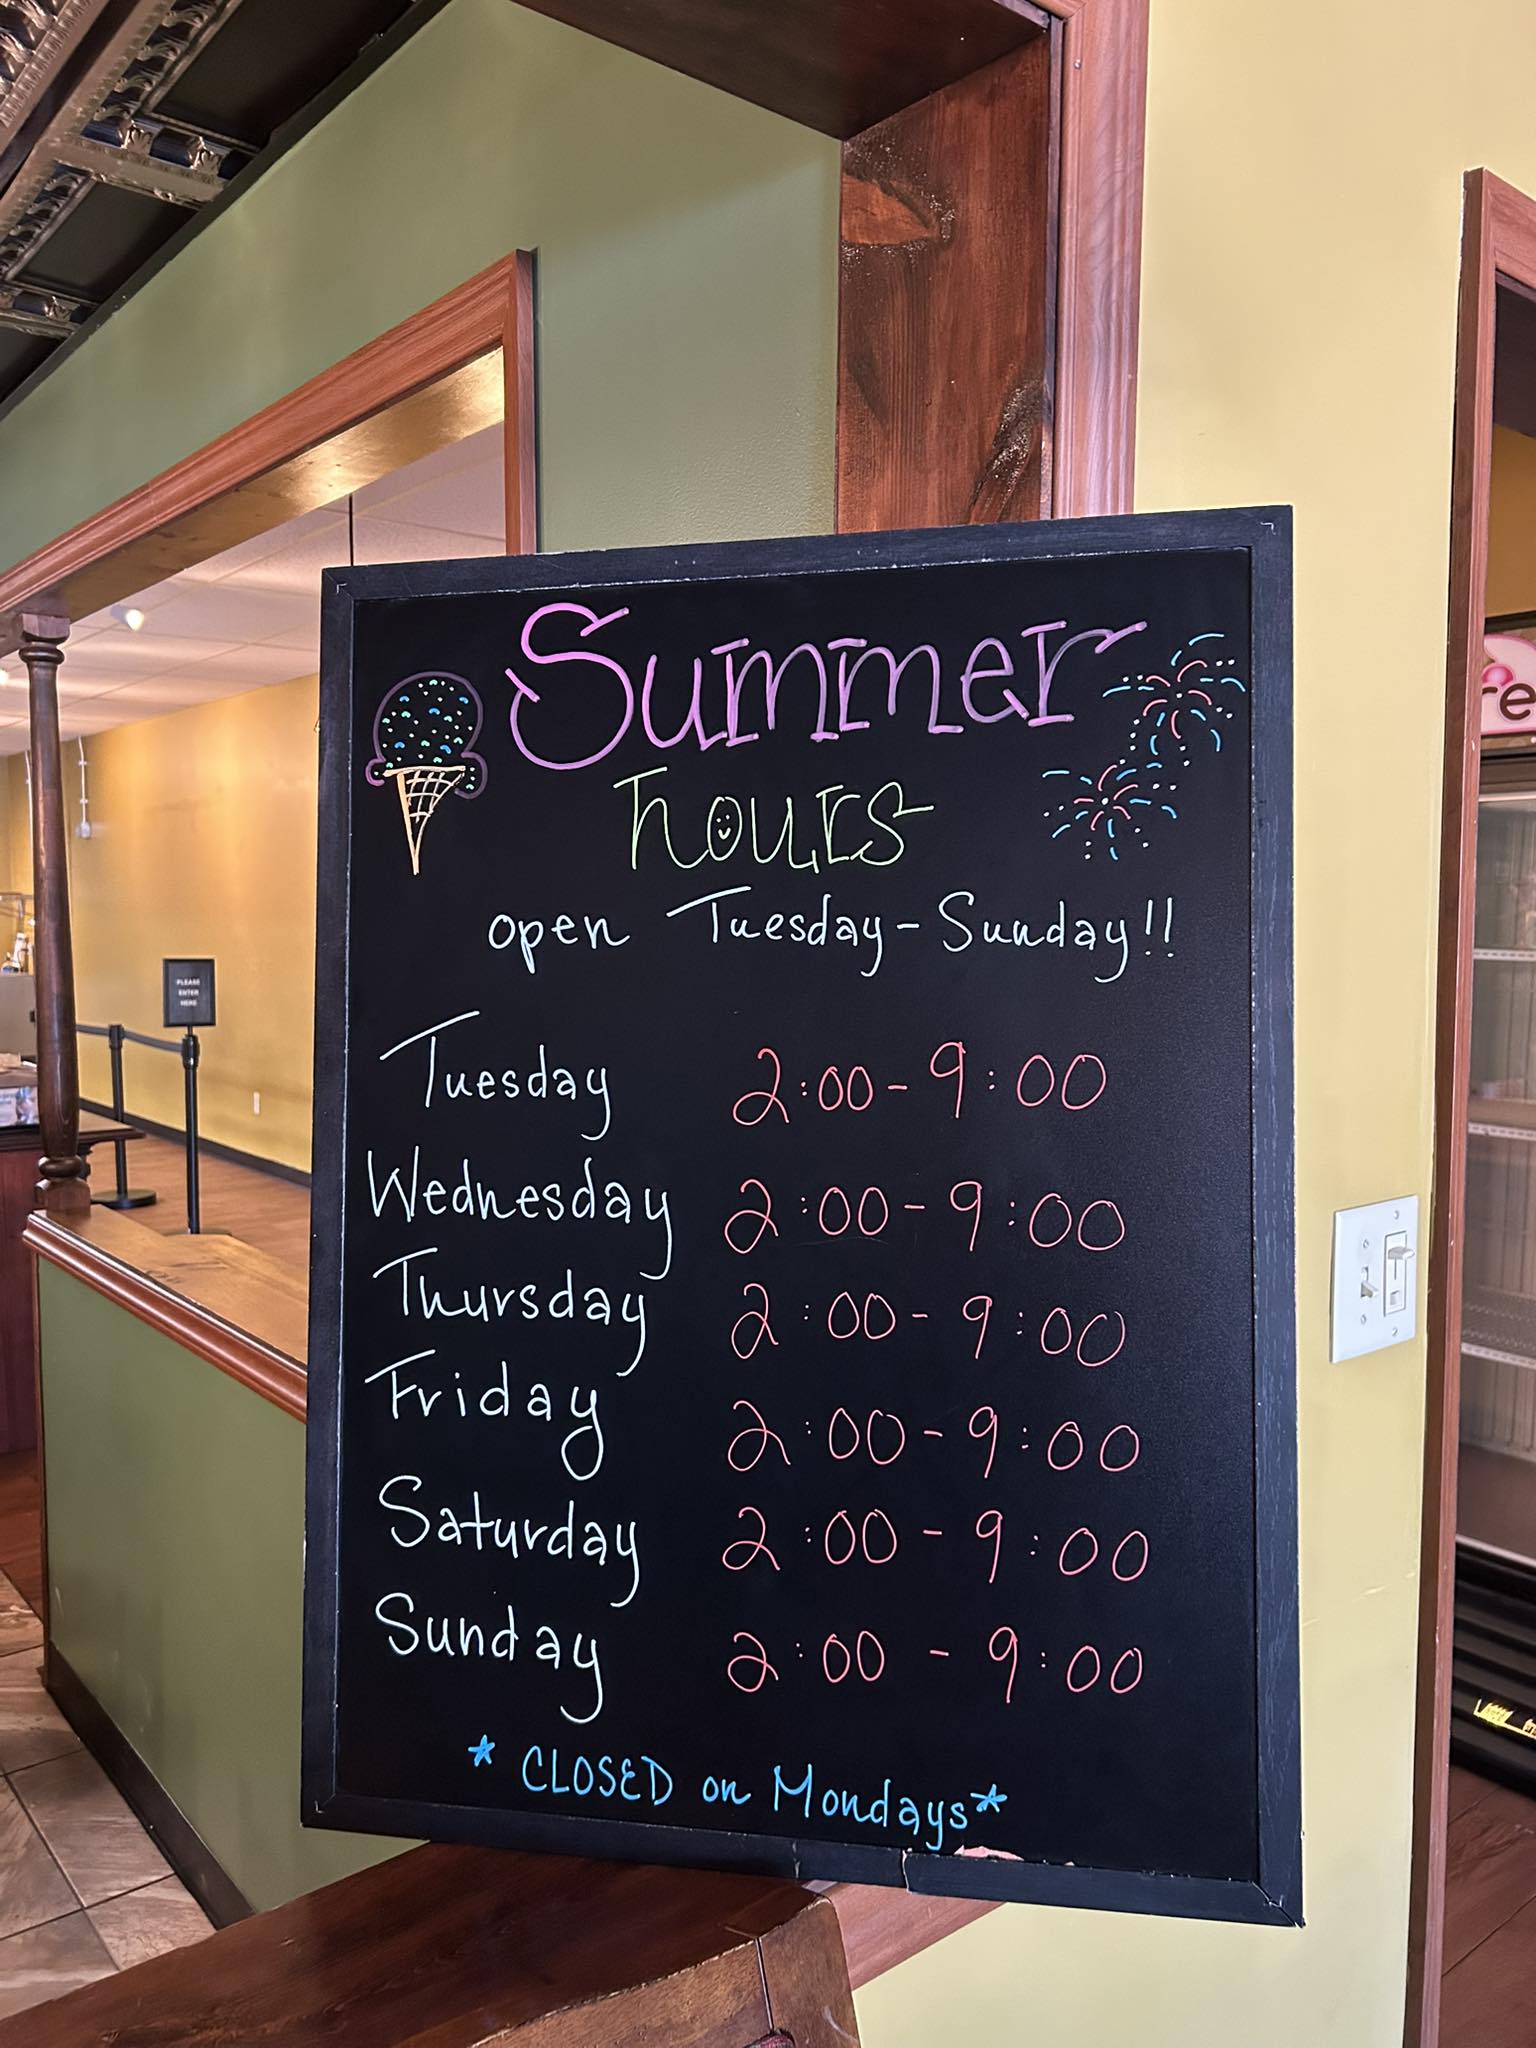 Summer
hours
open Tuesday - Sunday!!
Tuesday 2:00 - 9:00
Wednesday 2:00 - 9:00
Thursday 2:00 - 9:00
Friday 2:00 - 9:00
Saturday 2:00 - 9:00
Sunday 2:00 - 9:00
* CLOSED on Mondays *
PLEASE
ENTER
HERE